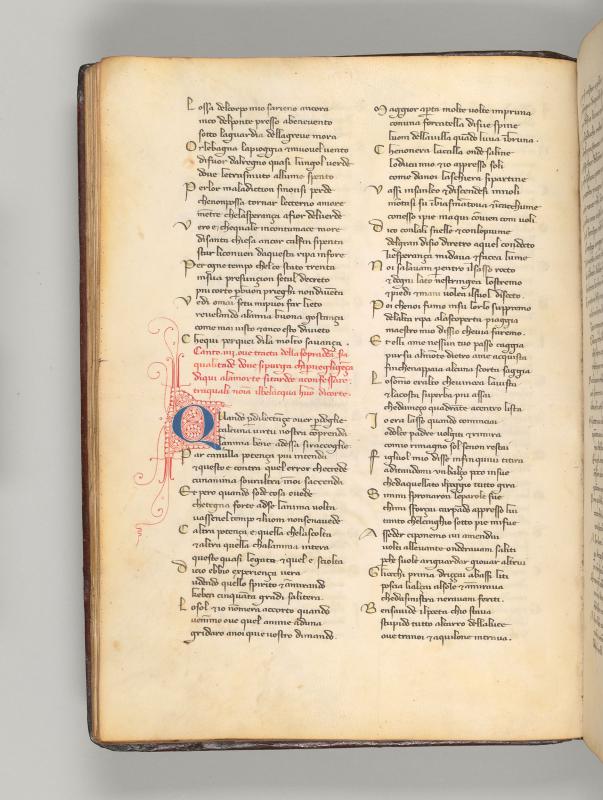 L ossa delcorpo mio sareno ancora
inco delponte presso abenevento
sotto laguardia dellagreve mora
O r lebagna lapioggia & muovel vento
difuor dalregno quasi lungol verde
dove letrasmuto allume spento
P er lor maladiction sinonsi perde
chenonpossa tornar lecterno amore
mentre chelasperança a fior delverde
V ero e chequale incontumace more
disanta chiesa ancor culfin sipenta
star liconven daquesta ripa infore
P er ogne tempo chelce stato trenta
insua presuntion setal decreto
piu corto pbuon prieghi nondiventa
V edi omai setu mipuoi far lieto
revelando alamia buona gostança
come mai visto & anco esto divieto
C hequi perquei dila molto savança.
Canto .iiii. ove tracta della sopradecta
qualitade dove sipurga chi pnegligença
diqui alamorte sitardo aconfessare.
traiquali noia ilbelacqua huo dicorte.
Q Uando pdilectançe over pdoglie
calcuna virtu nostra comprenda
lanima bene adessa siraccoglie
P ar canulla potença piu intenda
& questo e contra quel error checrede
cunanima sovraltra inoi saccenda
E t pero quando sode cosa overde
chetegna forte adse lanima volta
vassenel tempo & luom nonsenavede
C altra potença e quella chelascolta
& altra quella chalanima intera
questa quasi legata & quel e sciolta
D i cio ebbio experiença vera
udendo quello spirito & amirando
keben cinquanta gradi salitera
L o sol & io nonmera accorto quando
venimo ove quel anime aduna
gridaro anoi qui e vostro dimando.
M aggior aperta molte volte impruna
conuna forcatella disue spine
luom dellavilla quando luva inbruna.
C henonera lacalla onde saline
loduca mio & io appresso soli
come danoi laschiera sipartine
V assi insanleo & discendesi innoli
montasi su inbismantova
conesso pie ma qui conven com voli
D ico conlali snelle & conlepiume
delgran disio diretro aquel condocto
kesperança midava & facea lume
N oi salavam pentro ilsasso rocto
& dogni lato nestringea lostremo
& piedi & mani volea ilsuol disocto.
P oi chenoi fumo insu lorlo suppremo
delalta ripa alascoperta piaggia
maestro mio dissio chevia faremo.
E t elli ame nessun tuo passo caggia
pursu almonte dietro ame acquista
finchenappaia alcuna scorta saggia
L osomo eralto chevincea lavista
& lacosta superba piu assai
chedameço quadrante acentro lista
I o era lasso quando cominciai
odolce padre volgiti & rimira
comio rimagno sol senon restai
F igliuol mio disse infinquivi titira
aditandomi unbalço poco insue
chedaquellato ilpoggio tutto gira
S imi spronaron leparole sue
chimi sforçai carpando appresso lui
tanto chelcinghio sotto pie mifue
A sseder ciponemo ivi amendui
volti allevante ondravam saliti
che suole ariguardar giovar altrui
G li occhi prima driççai abassi liti
poscia lialçai alsole & amirava
chedasinistra neravam feriti.
B ensavide ilpoeta chio stava
stupido tutto alcarro dellaluce
ove tranoi & aquilone intrava.